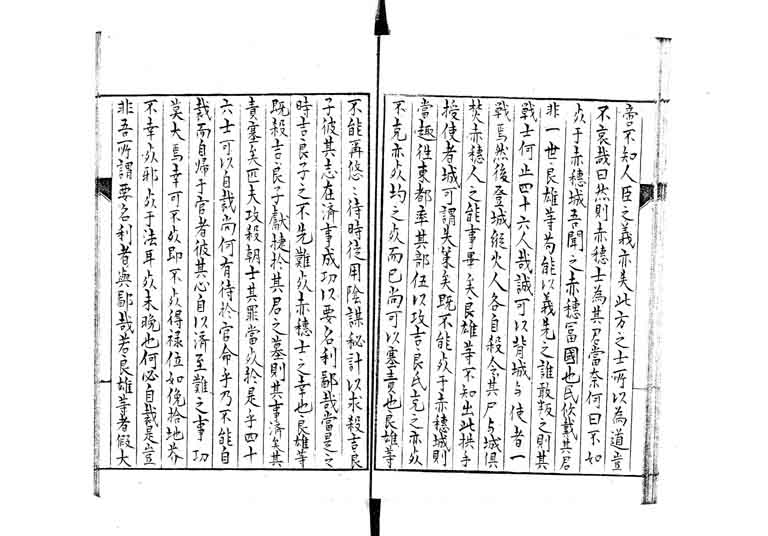 啻不知人臣之義亦失此方之士所以為道豈
不哀哉曰然則赤穗士為其君當奈何曰不如
死于赤穗城吾聞之赤穗富國也民欣戴其君
非一世良雄等苟能以義先之誰敢叛之則其
戰士何止四十六人哉誠可以背城与使者一
戰焉然後登城縱火人各自殺令其尸与城俱
焚赤穗人之能事畢矣良雄等不知出此拱手
授使者城可謂失策矣既不能死于赤穗城則
當趣徃東都率其部伍以攻吉良氏克之亦死
不克亦死均之死而已尚可以塞責也良雄等
不能再悠〻待時徒用陰謀秘計以求殺吉良
子彼其志在濟事成功以要名利鄙哉當是之
時吉良子之不先難死赤穗士之幸也良雄等
既殺吉良子獻捷於其君之墓則其事濟矣其
責塞矣匹夫攻殺朝士其罪當死於是乎四十
六士可以自裁尚何有待於官命乎乃不能自
裁而自歸于官者彼其心自以濟至難之事功
莫大焉幸可不死即不死得祿位如俛拾地芥
不幸死邪死于法耳死未晚也何必自裁是豈
非吾所謂要名利者與鄙哉若良雄等者假大